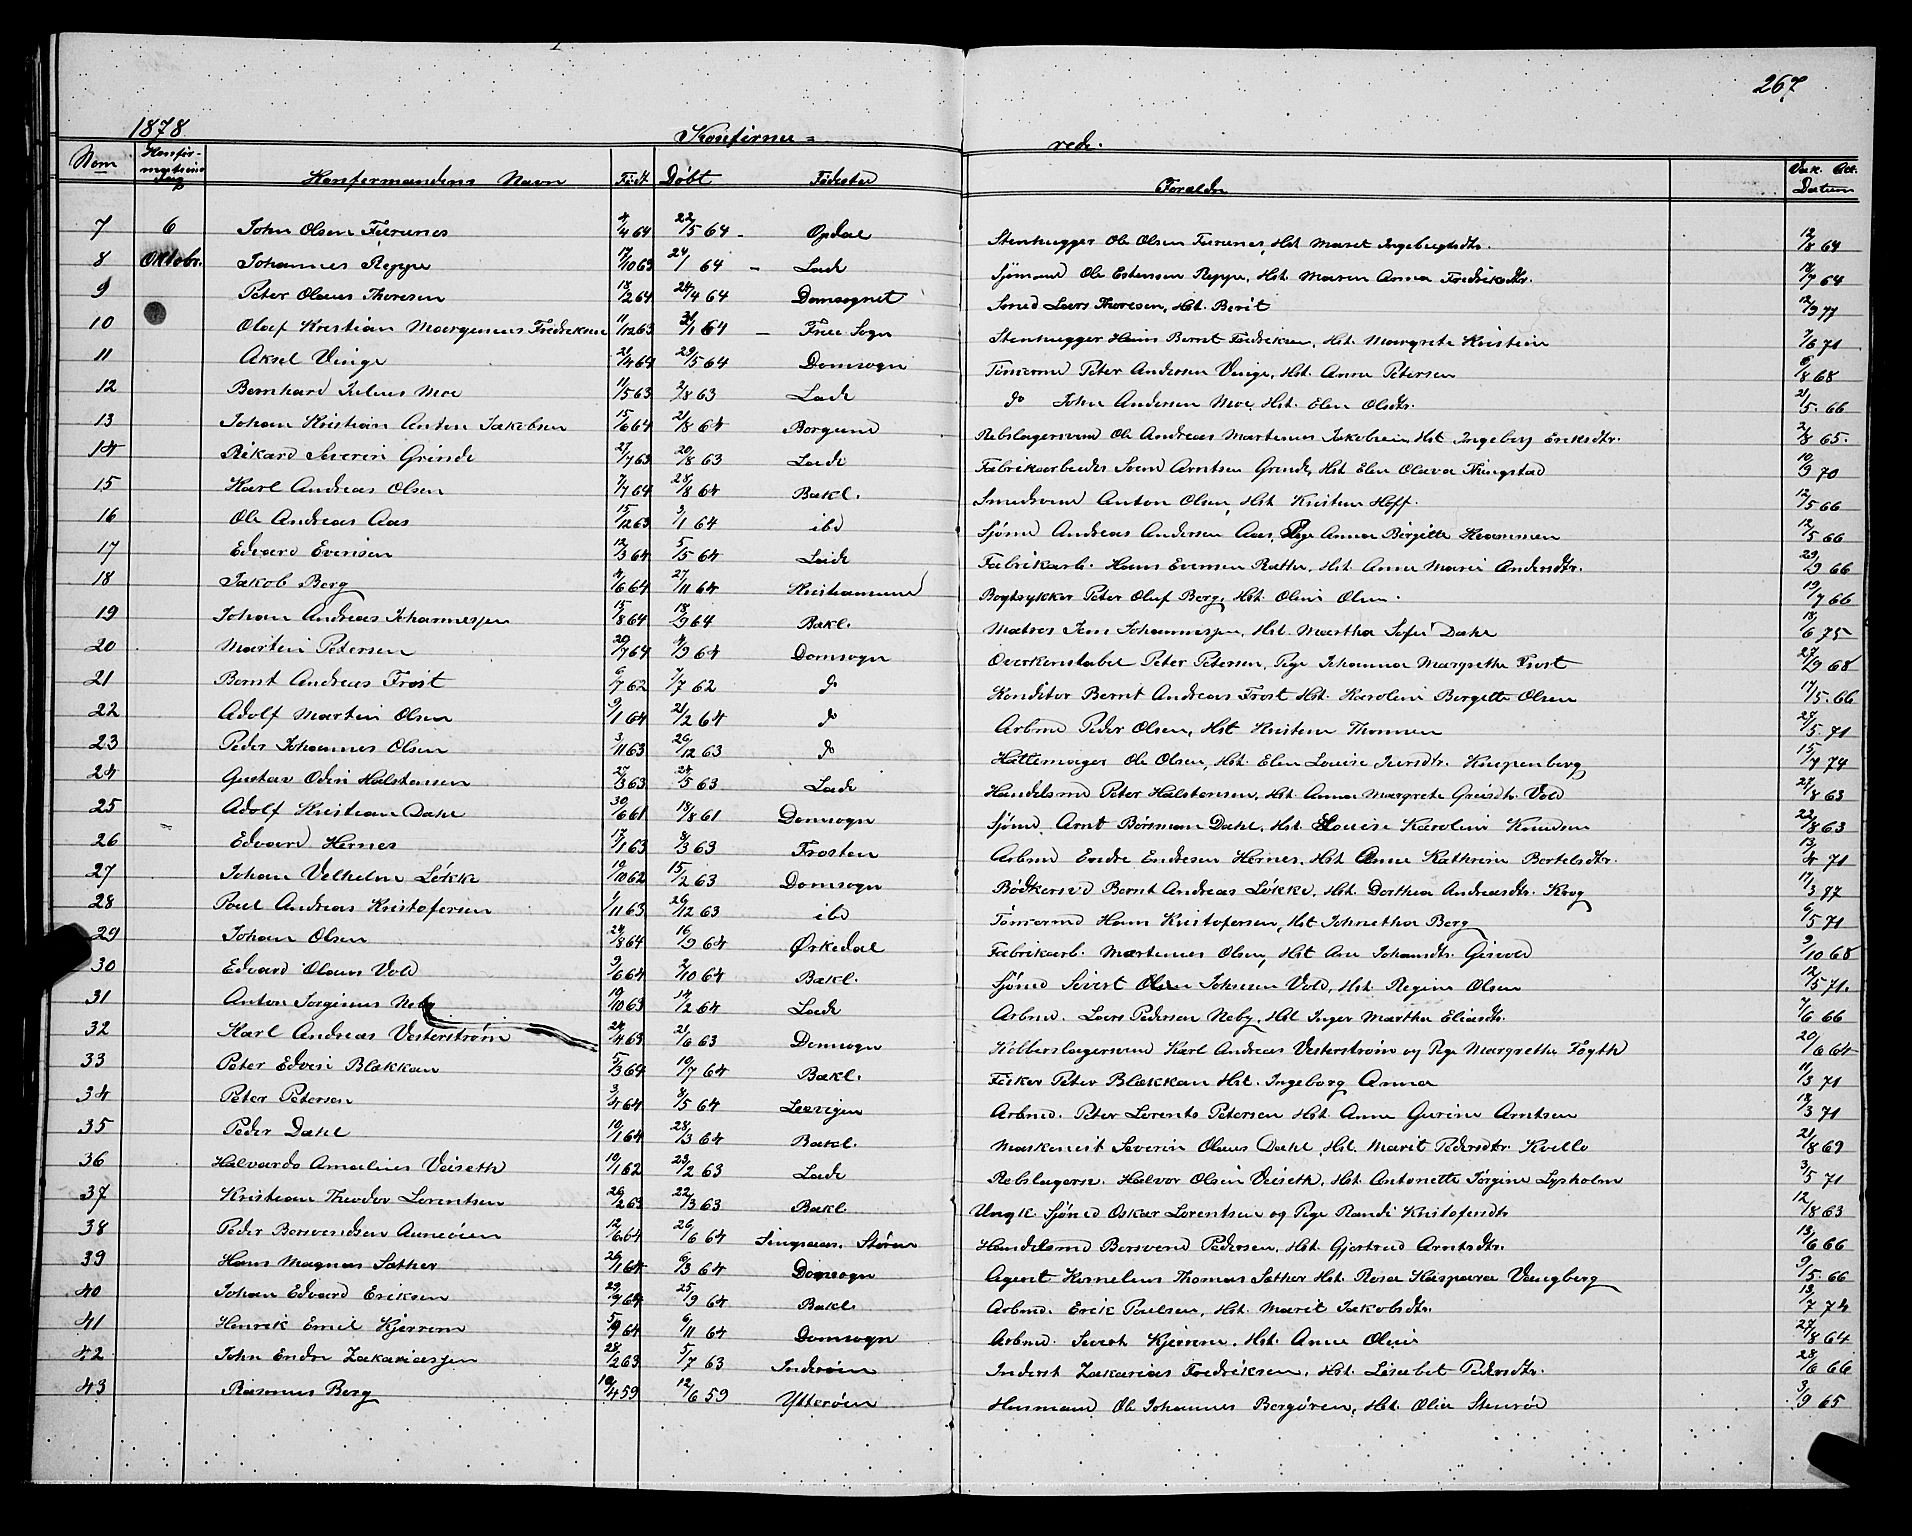 267
1878. Konfirme= rede.
Nom Konfir-mations Dag Konfirmandens Navn Født Døbt Fødested Forældre Vak. Att. Datum
7 6 John Olsen Furunes 4/4 64 22/5 64 - Opdal Stenhugger Ole Olsen Furunes, Hst. Maret Ingebrigtsdtr. 12/8 64
8 Oktobr. Johannes Reppe 17/10 63 24/1 64 - Lade Sjømand Ole Estensen Reppe, Hst. Maren Anna Fredriksdtr. 14/7 64
9 Peter Olaus Thoresen 18/2 64 24/4 64 Domsognet Smed Lars Thoresen, Hst. Berit 12/9 77
10 Olaf Kristian Margenus Fredriksen 11/12 63 31/1 64 - Frue Sogn Stenhugger Hans Bernt Fredriksen, Hst. Margrete Kristine 7/6 71
11 Aksel Vinge 21/4 64 29/5 64 Domsogn Tømmermd Peter Andersen Vinge, Hst. Anne Petersen 6/8 68
12 Bernhard Julius Moe 11/5 63 2/8 63 Lade do John Andersen Moe, Hst. Elen Olsdtr. 21/5. 66
13 Johan Kristian Anton Jakobsen 15/6 64 21/8 64 Borgund Rebslagersvend Ole Andreas Martinus Jakobsen, Hst Ingeborg Eriksdtr. 2/8 65.
14 Rikard Severin Grinde 27/7 63 20/8 63 Lade Fabrikarbeider Svend Arntsen Grinde, Hst Elen Olava Ningstad 10/9 70
15 Karl Andreas Olsen 7/7 64 28/8 64 Bakl. Smedsvend Anton Olsen, Hst Kristine Hoff. 12/5 66
16 Ole Andreas Aas 15/12 63 3/1 64 ibd Sjømd Andreas Andersen Aas, Pige Anna Birgitte Hermansen 12/5 66
17 Edvard Evensen 12/3 64 5/5 64 Lade Fabrikarb. Hans Evensen Rathe, Hst. Anne Marie Andersdtr. 29/9 66
18 Jakob Berg 4/6 64 27/11 64 Kristiansund Bogtrykker Peter Oluf Berg, Hst. Oline Olsen. 19/7 66
19 Johan Andreas Johannessen 15/8 64 18/9 64 Bakl. Matros Jens Johannessen, Hst. Martha Sofie Dahl 18/6 75
20 Martin Petersen 20/7 64 4/9 64 Domsogn Overkonstabel Peter Petersen, Pige Johanna Margrethe Frost 27/9 68
21 Bernt Andreas Frost 6/7 62 7/7 62 do Konditor Bernt Andreas Frost Hst. Karoline Bergitte Olsen 17/5. 66
22 Adolf Martin Olsen 9/1 64 21/2 64 do Arbmd Peder Olsen, Hst Kristine Thomsen 27/5. 71
23 Peder Johannes Olsen 3/11 63 26/12 63 do Hattemager Ole Olsen, Hst. Elen Louise Iversdtr. Knipenberg 15/7 74
24 Gustav Odin Halstensen 27/3 63 24/5 63 Lade Handelsmd Peter Halstensen, Hst. Anna Margrete Griisdtr. Vold 27/8 63
25 Adolf Kristian Dahl 30/6 61 18/8 61 Domsogn Sjømd. Arnt Børsman Dahl, Hst. Louise Karoline Knudsen 22/8 63
26 Edvard Hernes 17/1 63 8/3 63 Frosten Arbmd Endre Endresen Hernes, Hst Anne Kathrine Bertelsdtr. 13/4 71
27 Johan Vilhelm Løkke 19/10 62 15/2 63 Domsogn Bødkersvd Bernt Andreas Løkke, Hst. Dorthea Andreasdtr. Krog 17/3 77
28 Poul Andreas Kristofersen 1/11 63 26/12 63 ibd Tømmermd Hans Kristofersen, Hst Johnetha Berg 6/5 71
29 Johan Olsen 24/8 64 16/9 64 Ørkedal Fabrikarb. Martinus Olsen, Hst Ane Johansdtr. Gisvold 9/10 68
30 Edvard Olaus Vold 9/6 64 2/10 64 Bakl. Sjømd Sivert Olsen Johnsen Vold, Hst. Regine Olsen 12/5 71.
31 Anton Jørginus Neby 19/10 63 14/2 64 Lade Arbmd. Lars Pedersen Neby, Hst Inger Martha Eliasdtr. 7/6 66
32 Karl Andreas Vesterstrøm 24/4 63 21/6 63 Domsogn Kobberslagersvend Karl Andreas Vesterstrøm og Pige Margrethe Fogth 20/6 64
33 Peter Edvin Blækkan 5/3 64 10/7 64 Bakl. Fisker Peter Blækkan Hst. Ingeborg Anna 11/3 71
34 Peter Petersen 3/4 64 8/5 64 Leevigen Arbmd. Peter Lorents Petersen Hst. Anne Gurine Arntsen 18/3 71
35 Peder Dahl 10/1 64 28/3 64 Bakl. Maskenist Severin Olaus Dahl Hst. Marit Pedersdtr. Kvello 21/8 69
36 Halvardo Amalius Veiseth 19/1 62 23/2 63 Lade Rebslagersv. Halvor Olsen Veiseth, Hst. Antonette Jørgine Lysholm 3/5 71
37 Kristian Theodor Lorentsen 26/2 63 22/3 63 Bakl. Ungk. Sjømd Oskar Lorentsen og Pige Randi Kristofersdtr 12/8 63
38 Peder Borsvendsen Aunøien 12/6 64 26/6 64 Singsaas. Støren Handelsmd Borsvend Pedersen, Hst. Gjertrud Arntsdtr. 13/6 66
39 Hans Magnus Sæther 26/1 64 6/3 64 Domsogn Agent Kornelius Thomas Sæther Hst. Rosa Kaspara Vangberg 9/5. 66
40 Johan Edvard Eriksen 29/7 64 25/9 64 Bakl. Arbmd. Erik Poulsen, Hst. Marit Jakobsdtr. 13/7 74
41 Henrik Emil Kjerrem 5/9 64 6/11 64 Domsogn Arbmd. Sivert Kjerrem, Hst. Anne Oline 27/8 64
42 John Endre Zakariassen 28/2 63 5/7 63 Inderøen Inderst Zakarias Fredriksen, Hst. Lisabet Pedersdtr. 28/6 66
43 Rasmus Berg 10/4 59 12/6 59 Ytterøen Husmand Ole Johannes Bergøren, Hst. Olia Stenrød 3/9 65